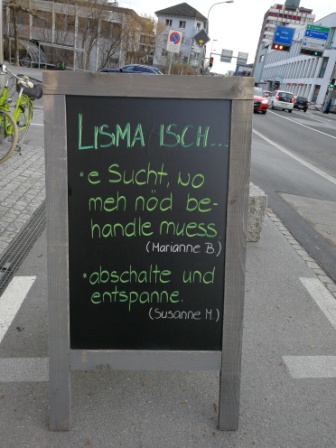 LISMA ISCH...
• e Sucht, wo
meh nöd be-
handle muess.
(Marianne B.)
• abschalte und
entspanne.
(Susanne M.)